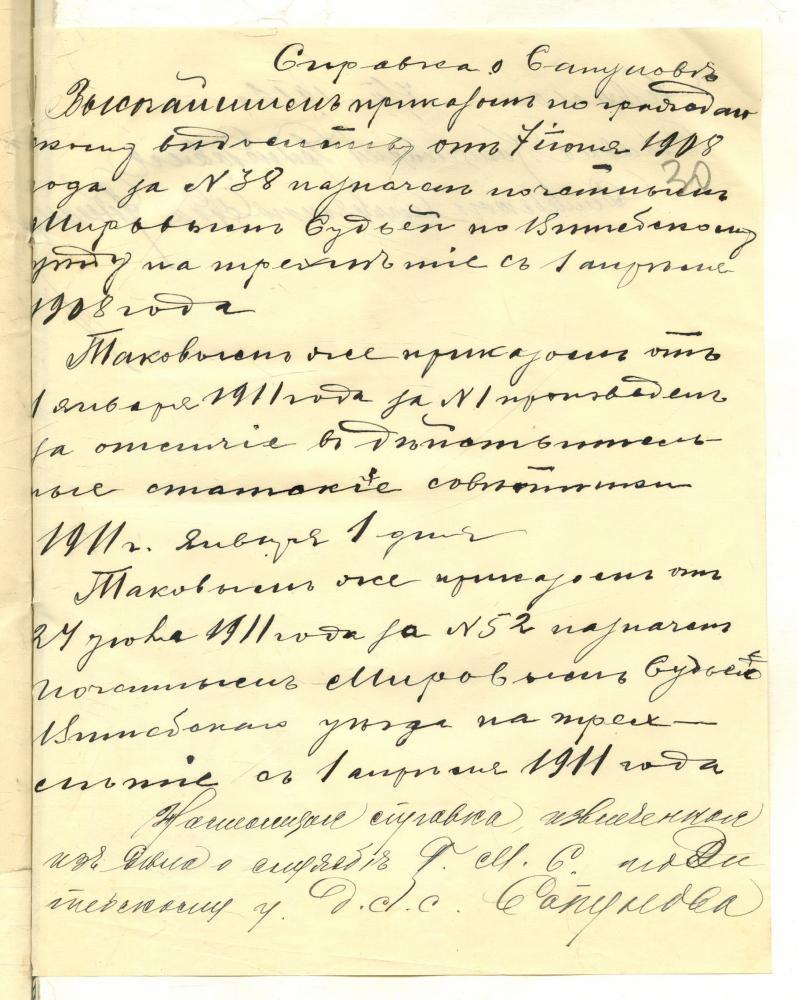 Справка о Сапуновѣ
Высочайшимъ приказомъ по граждан
скому вѣдомству отъ 7 іюня 1908
30
года за № 38 назначенъ почетнымъ
Мировымъ Судьей по Витебскому
уѣзду на трехлѣтіе съ 1 апрѣля
1908 года
Таковымъ же приказомъ отъ
1 января 1911 года за № 1 произведенъ
за отличіе въ дѣйствитель
ные статскіе совѣтники
1911 г. января 1 дня
Таковымъ же приказомъ отъ
1911 года за № 52 назначенъ
почетнымъ Мировымъ Судьей
Витебскаго уѣзда на трех—
лѣтіе съ 1 апрѣля 1911 года
Настоящая справка, извлеченная
изъ дѣла о службѣ П. М. С. по Ви
тебскому у. Д. С. С. Сапунова